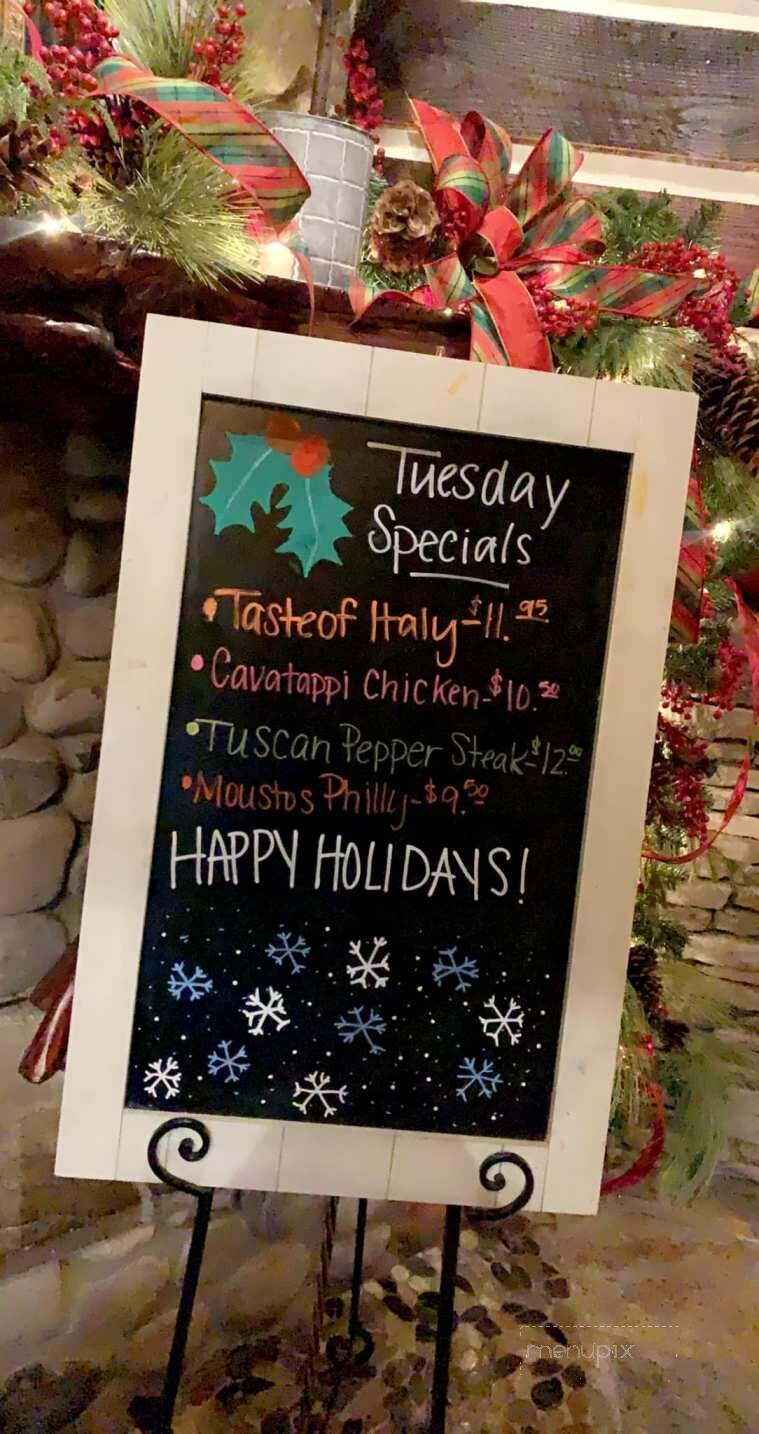 Tuesday
Specials
• Taste of Italy - $11.95
• Cavatappi Chicken - $10.50
• Tuscan Pepper Steak - $12.00
• Moustos Philly - $9.50
HAPPY HOLIDAYS!
menupix